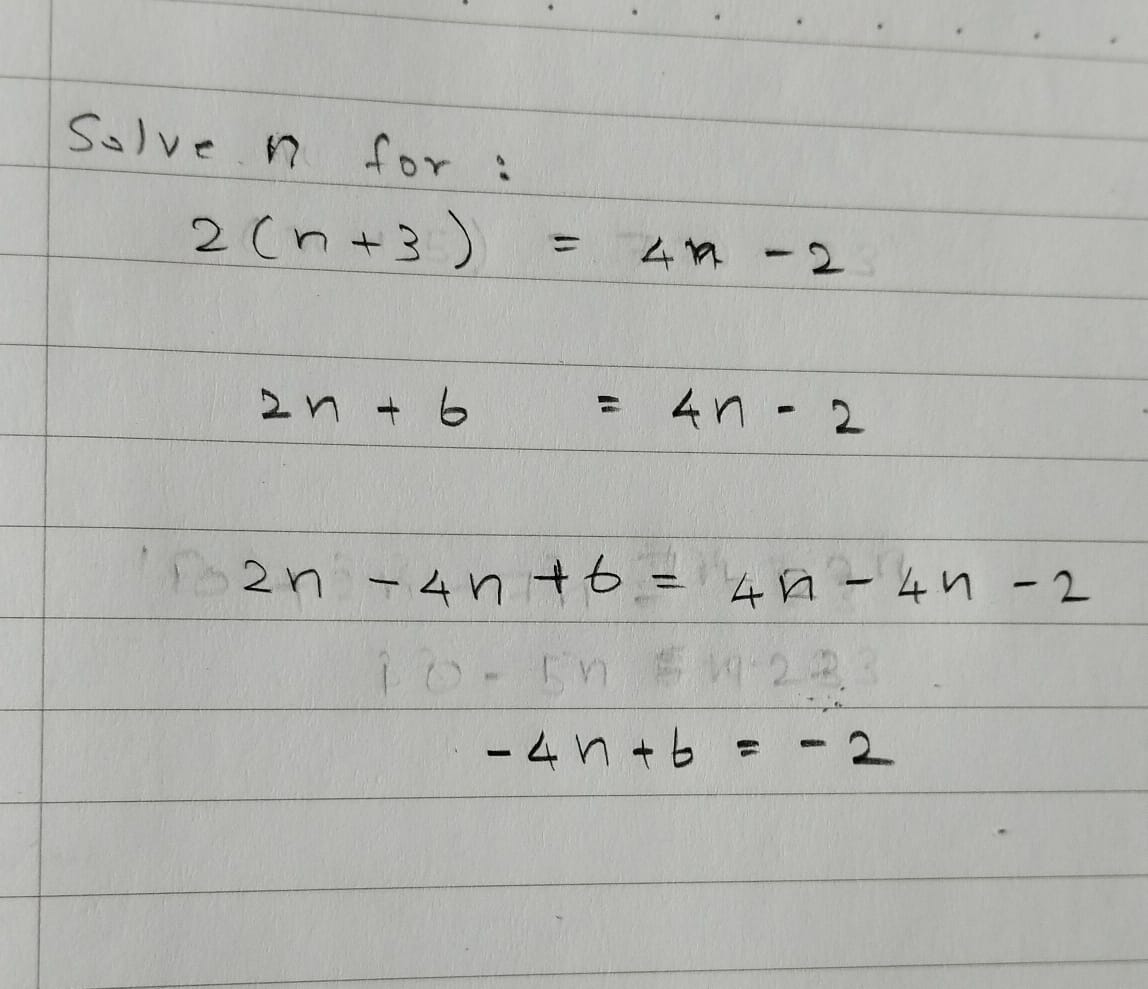 Solve n for :
2(n+3) = 4n -2
2n + 6 = 4n - 2
2n - 4n +6 = 4n - 4n - 2
-4n+6 = -2